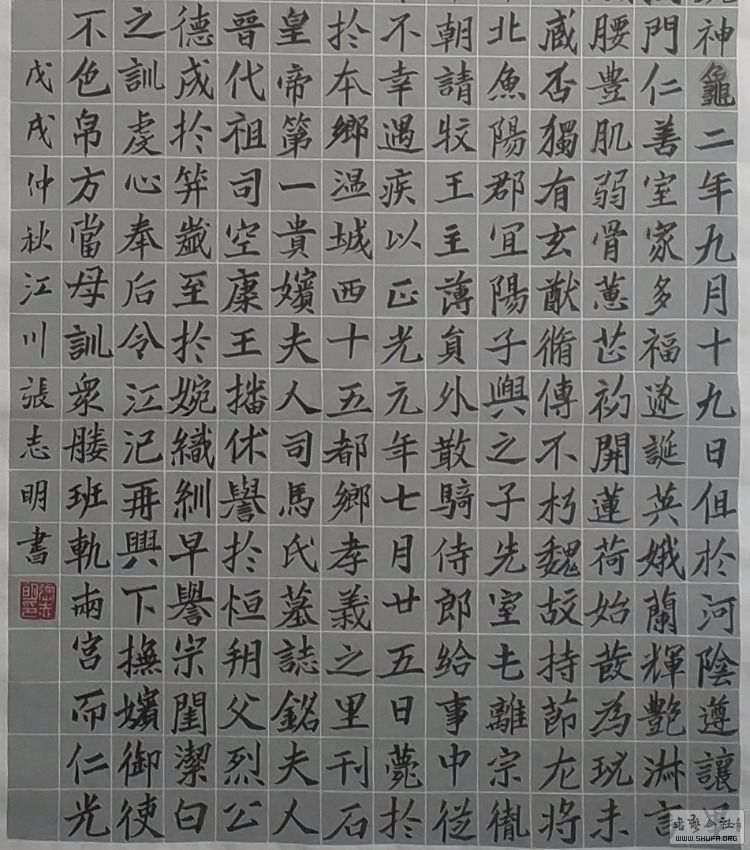 神龜二年九月十九日但於河陰遵讓
門仁善室家多福遂誕英娥蘭輝艷淋
腰豊肌弱骨蕙芷初開蓮荷始發為玩未
臧否獨有玄猷脩傳不朽魏故持節左將
北魚陽郡宜陽子興之子先室毛離宗胤
朝請牧王主薄員外散騎侍郎給事中從
不幸遇疾以正光元年七月廿五日薨於
於本鄉温城西十五都鄉孝義之里刊石
皇帝第一貴嬪夫人司馬氏墓誌銘夫人
晉代祖司空康王播休譽於恒朔父烈公
德成於笄歲至於婉織紃早譽宗閨潔白
之訓虔心奉后令江汜再興下撫嬪御使
不色帛方當母訓衆媵班軌兩宮而仁光
戊戌仲秋江川張志明書
WWW.SHUFA.ORG